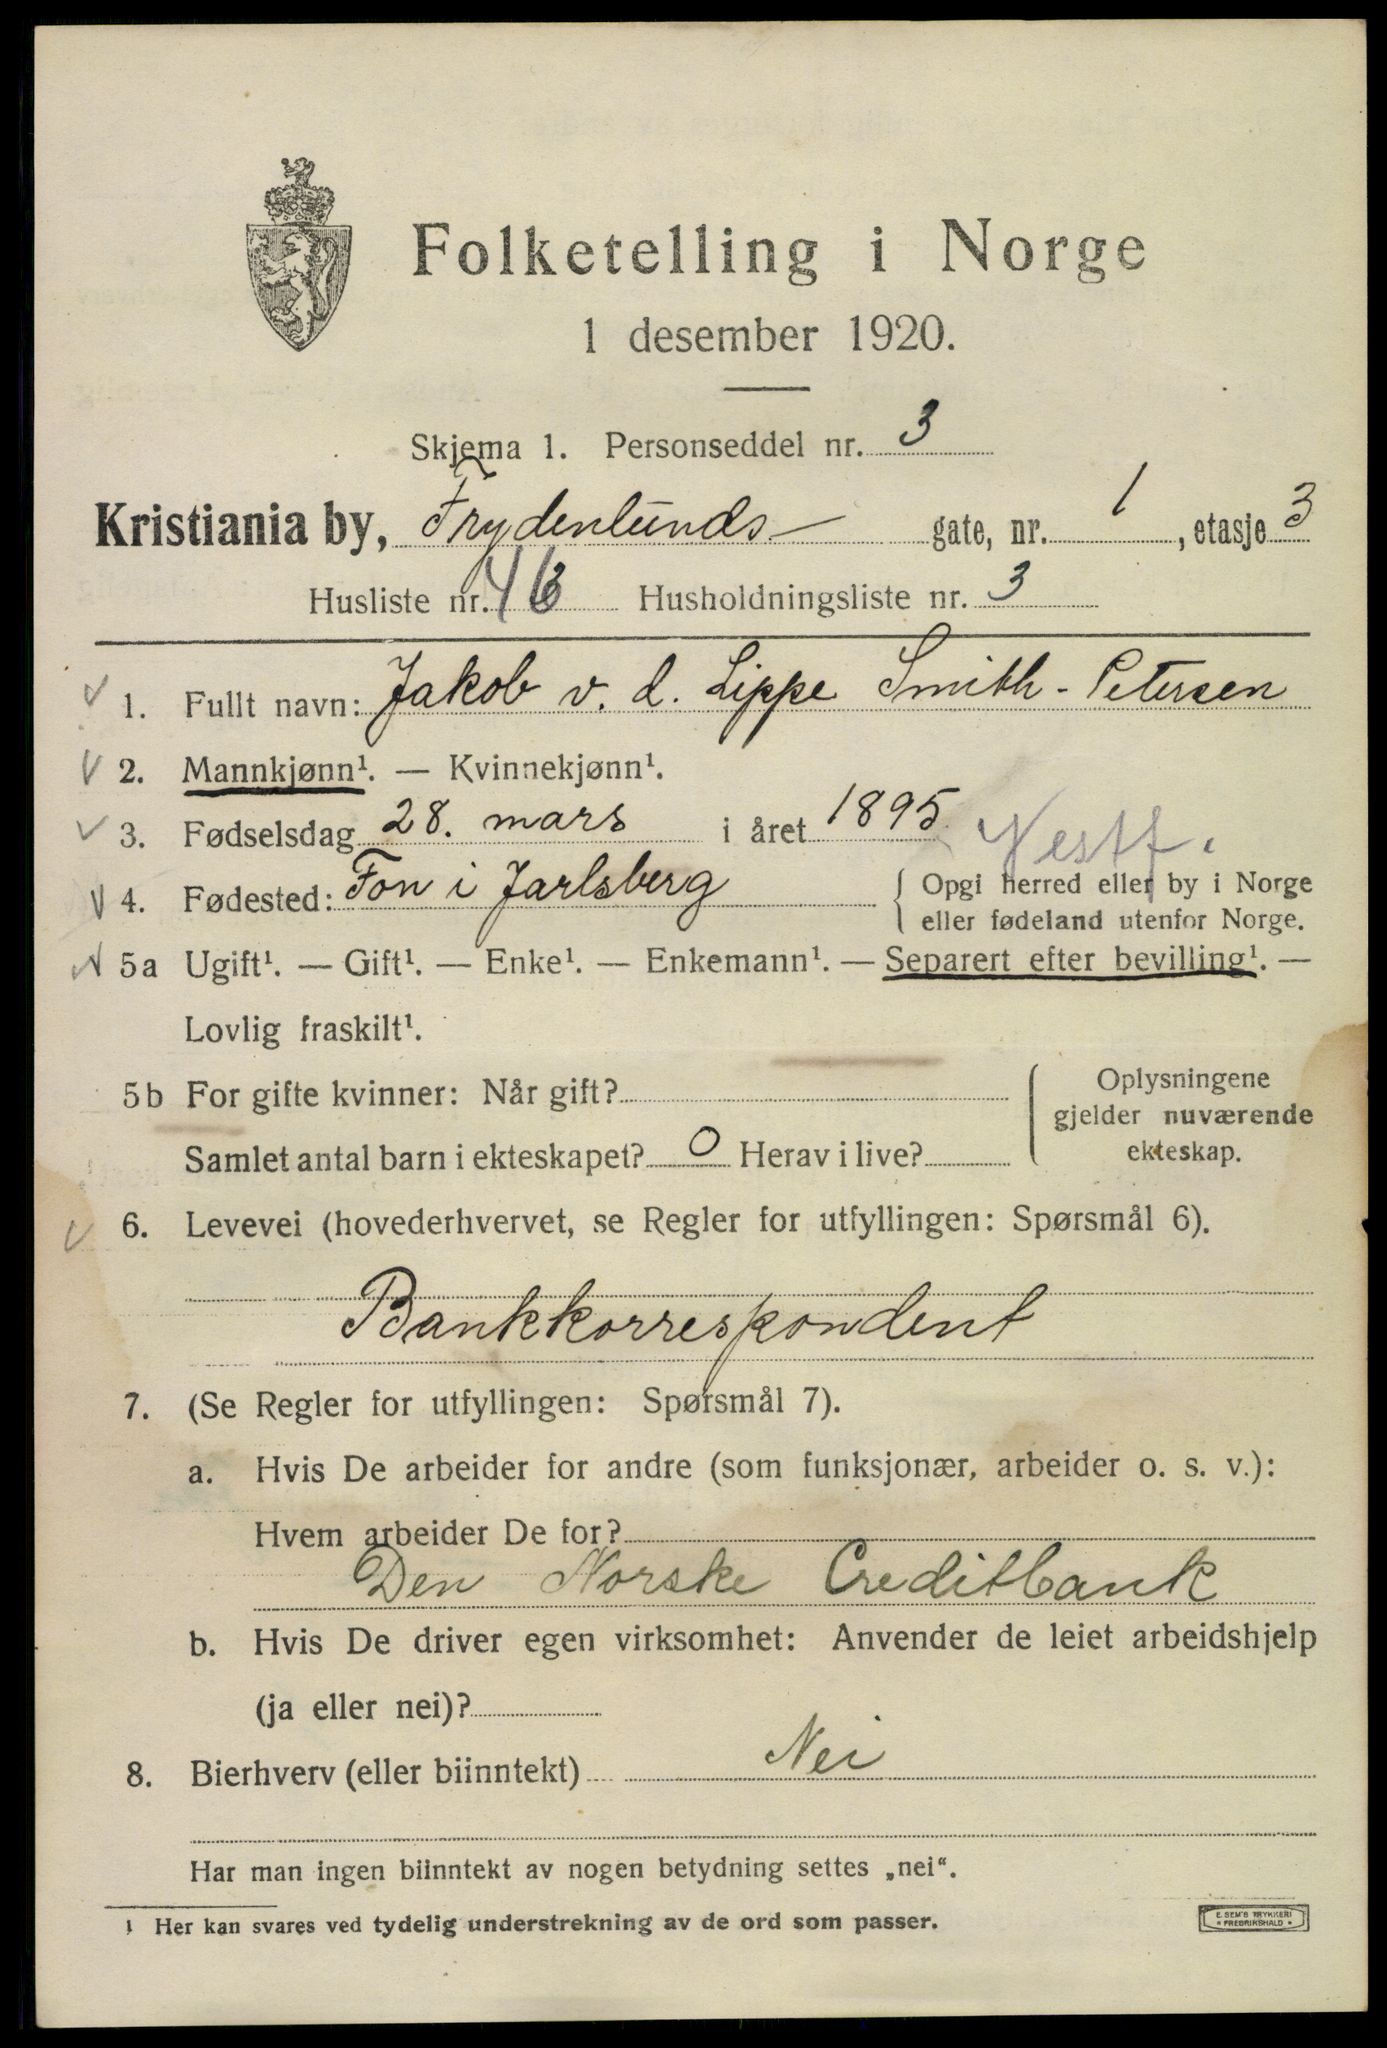 Folketelling i Norge
1 desember 1920.
Skjema 1. Personseddel nr. 3
Kristiania by, Frydenlunds- gate, nr. 1, etasje 3
Husliste nr. Husholdningsliste nr. 3
1. Fullt navn: Jakob v. d. Lippe Smith-Petersen
2. Mannkjønn¹. — Kvinnekjønn¹.
3. Fødselsdag 28. mars i året 1895 Vestf.
4. Fødested: Fon i Jarlsberg { Opgi herred eller by i Norge
eller fødeland utenfor Norge.
5a Ugift¹. — Gift¹. — Enke¹. — Enkemann¹. — Separert efter bevilling¹. —
Lovlig fraskilt¹.
5b For gifte kvinner: Når gift?
Samlet antal barn i ekteskapet? 0 Herav i live?
Oplysningene
gjelder nuværende
ekteskap.
6. Levevei (hovederhvervet, se Regler for utfyllingen: Spørsmål 6).
Bankkorrespondent
7. (Se Regler for utfyllingen: Spørsmål 7).
a. Hvis De arbeider for andre (som funksjonær, arbeider o. s. v.):
Hvem arbeider De for?
Den Norske Creditbank
b. Hvis De driver egen virksomhet: Anvender de leiet arbeidshjelp
(ja eller nei)?
8. Bierhverv (eller biinntekt) Nei
Har man ingen biinntekt av nogen betydning settes „nei“.
¹ Her kan svares ved tydelig understrekning av de ord som passer.
E. SEM'S TRYKKERI
* FREDRIKSHALD *